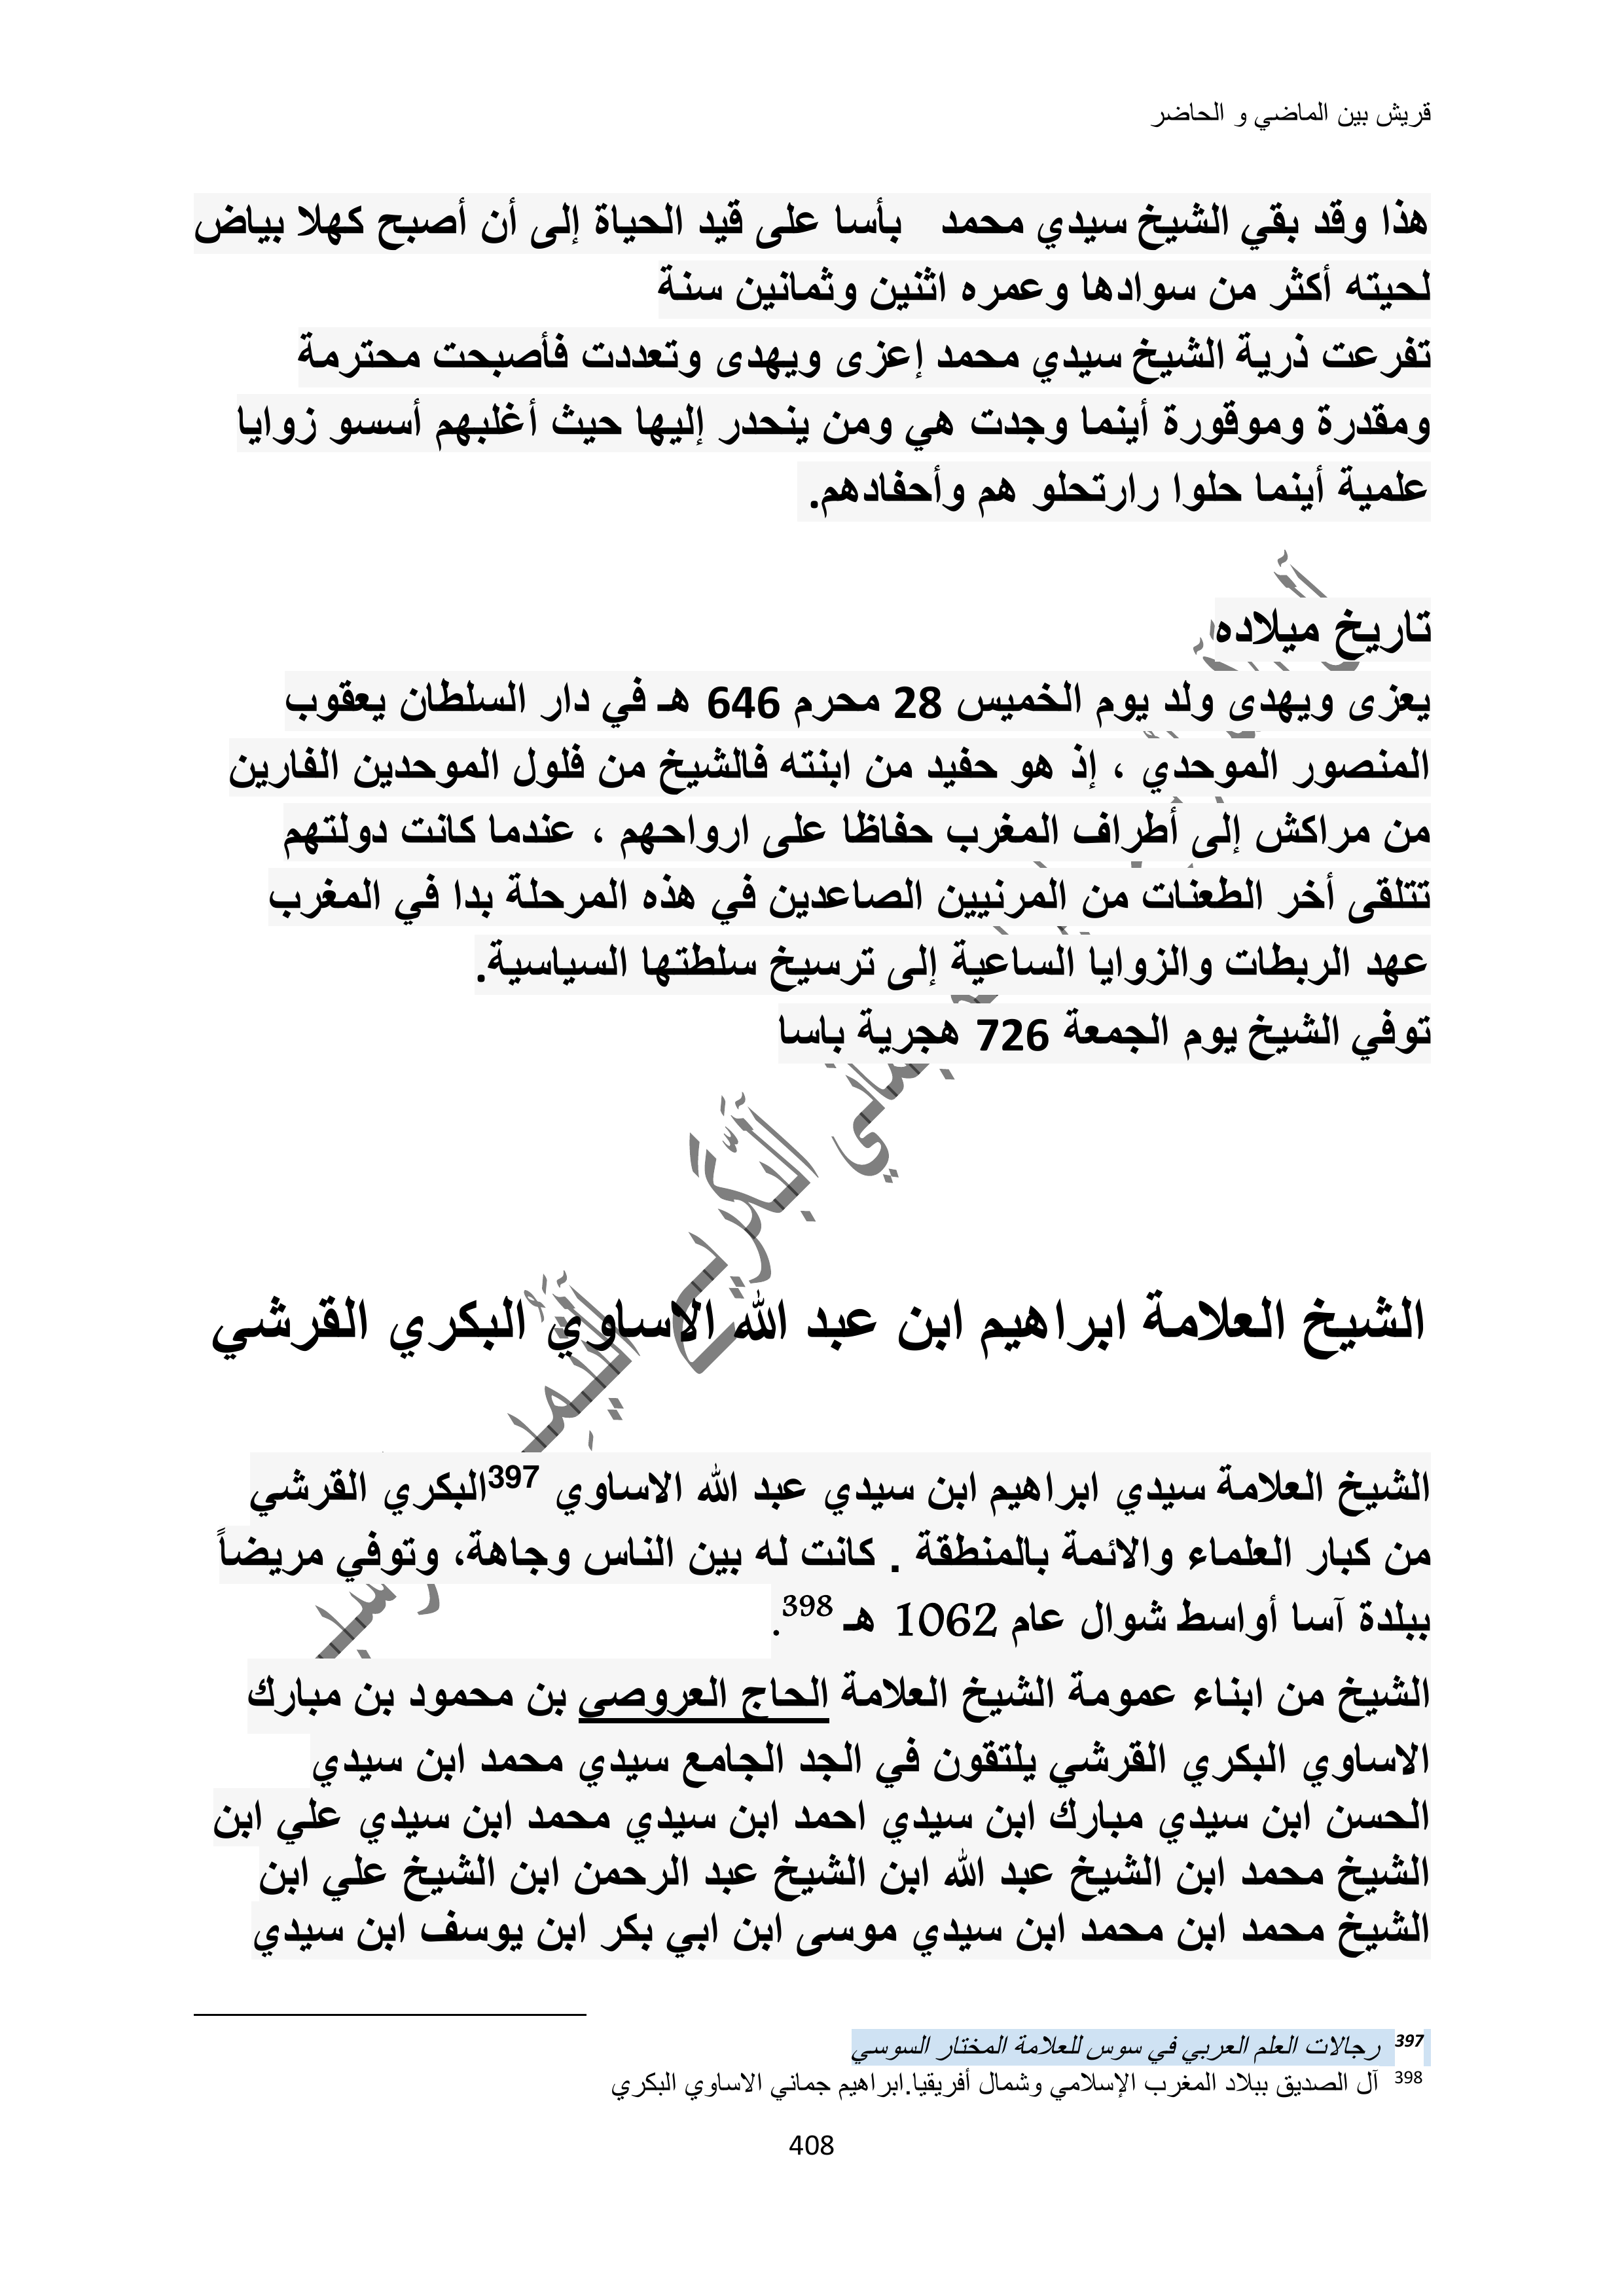 قريش بين الماضي و الحاضر
هذا وقد بقي الشيخ سيدي محمد بأسا على قيد الحياة إلى أن أصبح كهلا بياض
لحيته أكثر من سوادها وعمره اثنين وثمانين سنة
تفرعت ذرية الشيخ سيدي محمد إعزى ويهدى وتعددت فأصبحت محترمة
ومقدرة وموقورة أينما وجدت هي ومن ينحدر إليها حيث أغلبهم أسسو زوايا
علمية أينما حلوا رارتحلو هم وأحفادهم.
تاريخ ميلاده
يعزى ويهدى ولد يوم الخميس 28 محرم 646 هـ في دار السلطان يعقوب
المنصور الموحدي ، إذ هو حفيد من ابنته فالشيخ من فلول الموحدين الفارين
من مراكش إلى أطراف المغرب حفاظا على ارواحهم ، عندما كانت دولتهم
تتلقى أخر الطعنات من المرنيين الصاعدين في هذه المرحلة بدا في المغرب
عهد الربطات والزوايا الساعية إلى ترسيخ سلطتها السياسية.
توفي الشيخ يوم الجمعة 726 هجرية باسا
الشيخ العلامة ابراهيم ابن عبد الله الاساوي البكري القرشي
الشيخ العلامة سيدي ابراهيم ابن سيدي عبد الله الاساوي 397البكري القرشي
من كبار العلماء والائمة بالمنطقة . كانت له بين الناس وجاهة، وتوفي مريضاً
ببلدة آسا أواسط شوال عام 1062 هـ 398.
الشيخ من ابناء عمومة الشيخ العلامة الحاج العروصي بن محمود بن مبارك
الاساوي البكري القرشي يلتقون في الجد الجامع سيدي محمد ابن سيدي
الحسن ابن سيدي مبارك ابن سيدي احمد ابن سيدي محمد ابن سيدي علي ابن
الشيخ محمد ابن الشيخ عبد الله ابن الشيخ عبد الرحمن ابن الشيخ علي ابن
الشيخ محمد ابن محمد ابن سيدي موسى ابن ابي بكر ابن يوسف ابن سيدي
397 رجالات العلم العربي في سوس للعلامة المختار السوسي
398 آل الصديق ببلاد المغرب الإسلامي وشمال أفريقيا.ابراهيم جماني الاساوي البكري
408